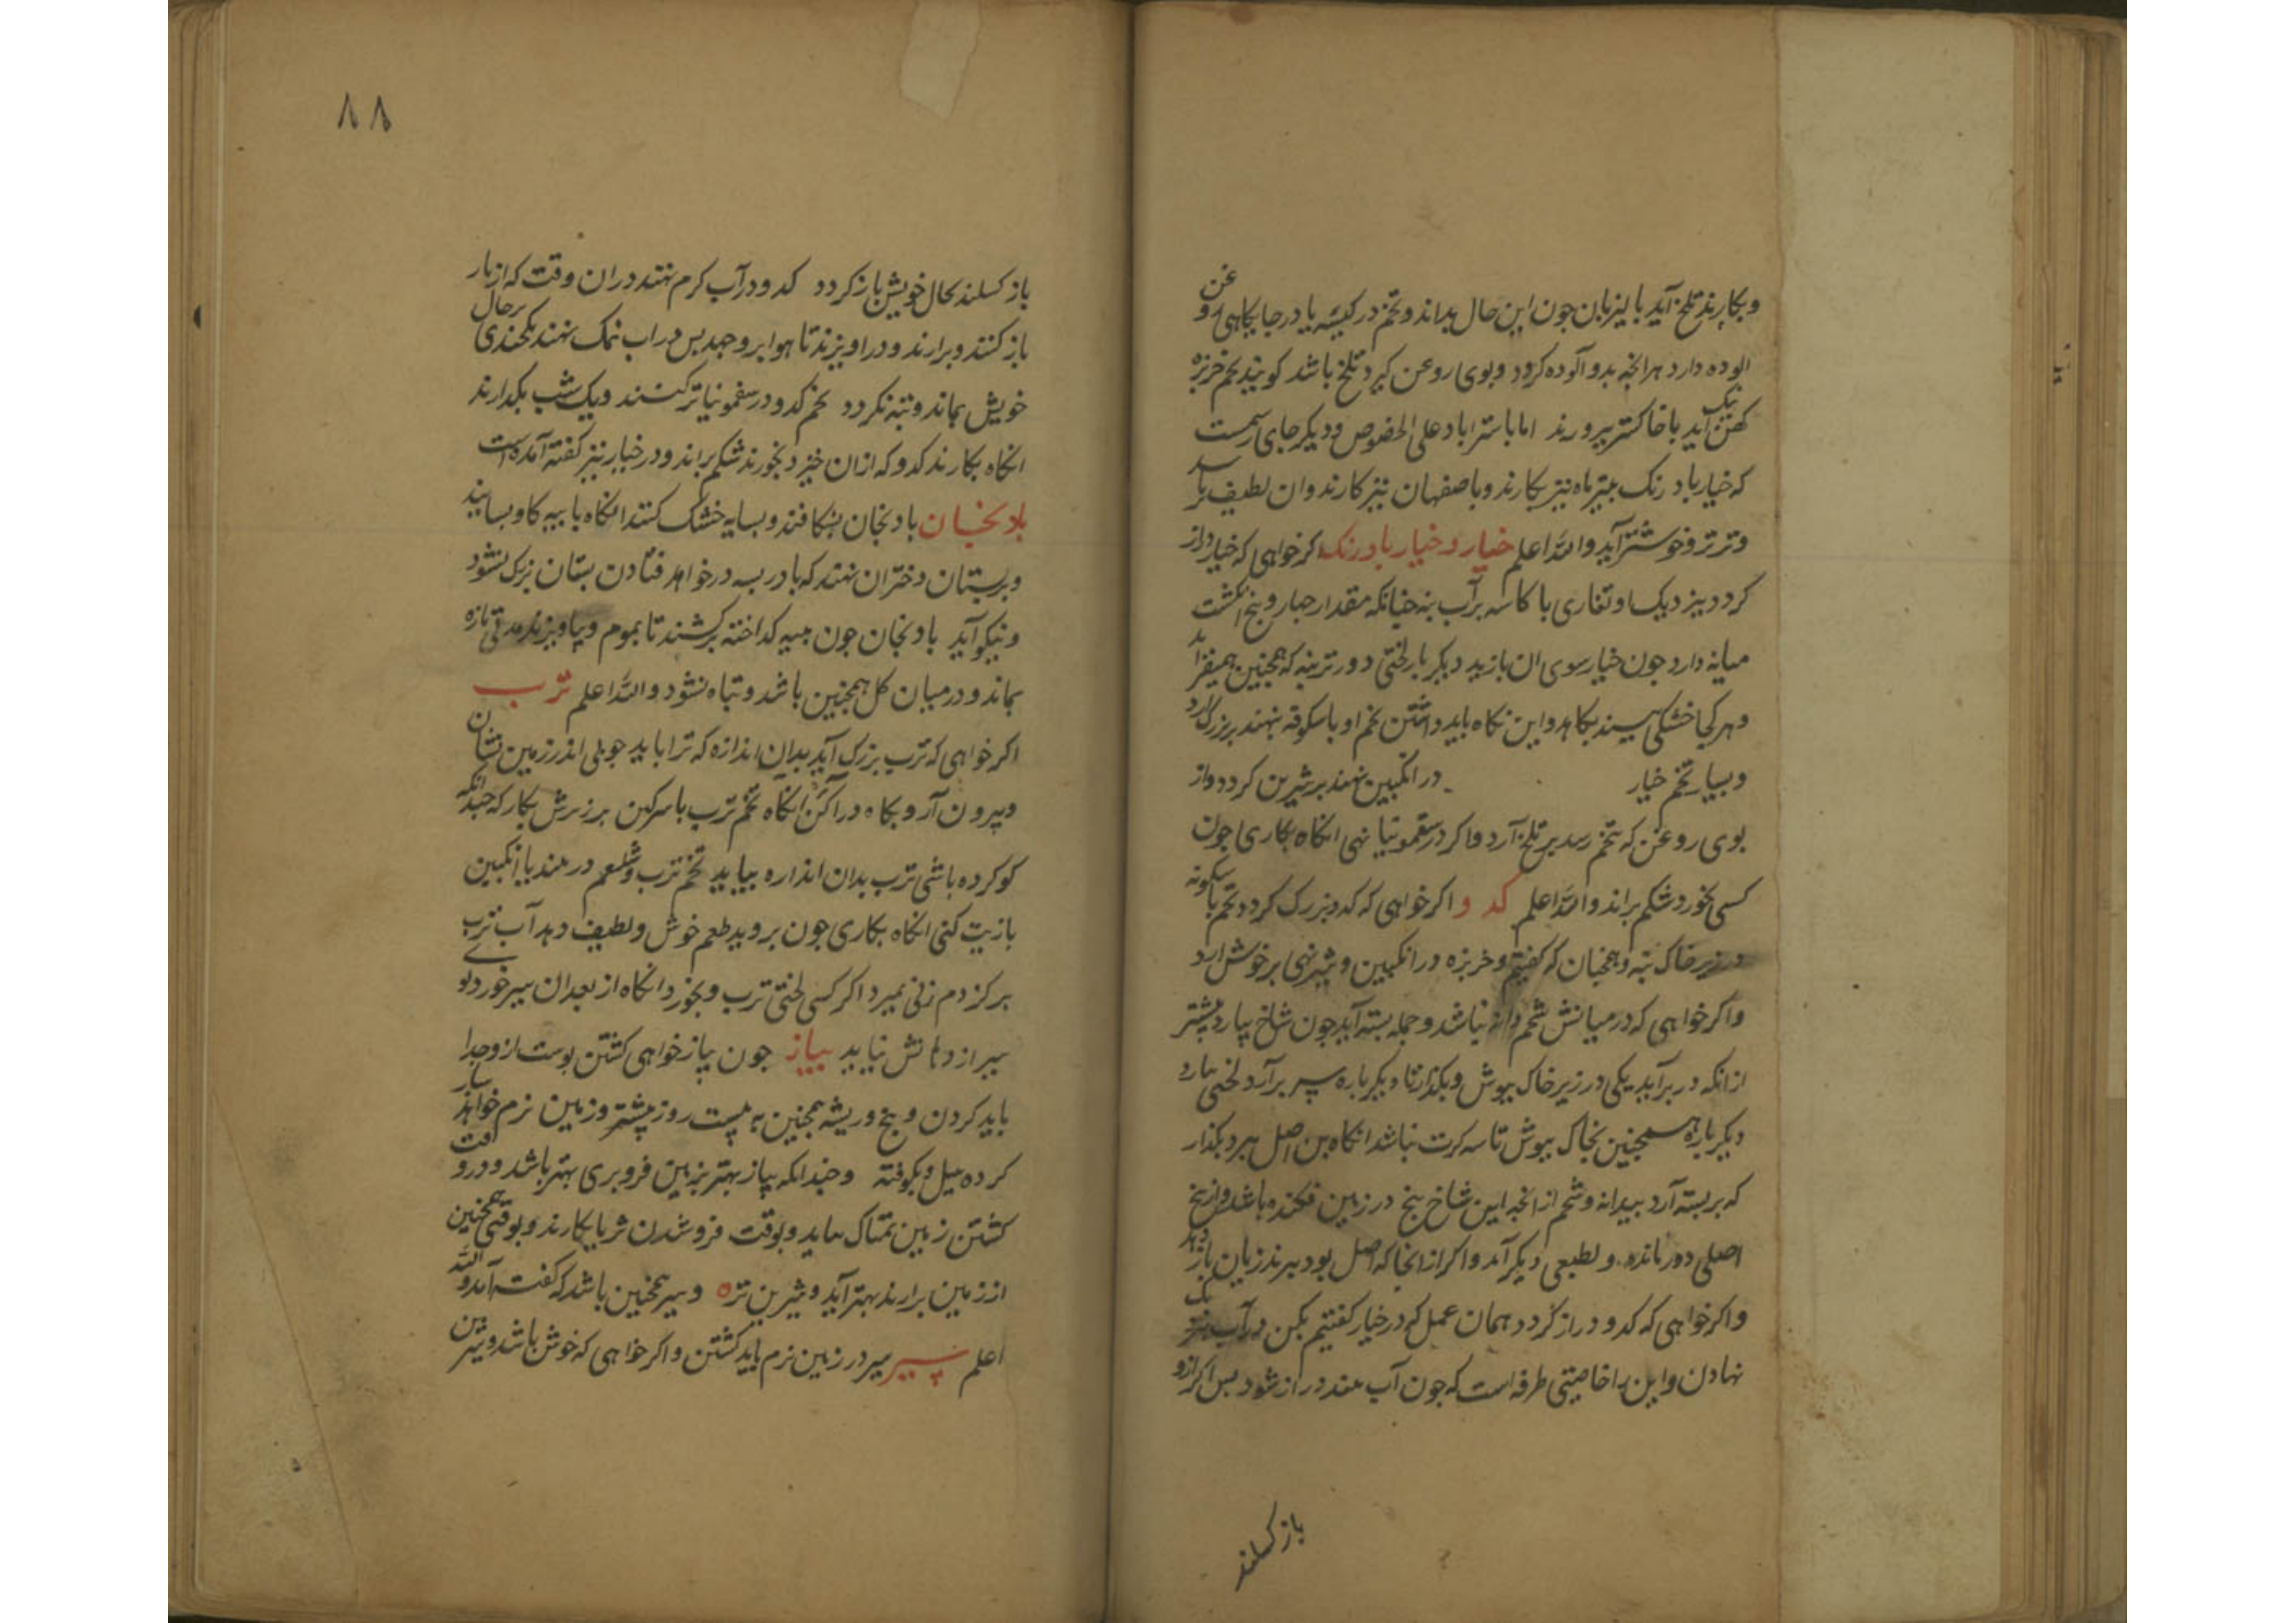 وبکارند تلخ آید پالیزبان چون این حال بداند وتخم در کیسه یا در جایکاهی روغن
الوده دارد هرانچه بدو آلوده کردد وبوی روغن کیرد تلخ باشد کویند تخم خربزه
کهن نیک آید باخاکستر پرورند اما باستراباد علی الخصوص ودیکر جای رسمست
که خیار بادرنک بتیر ماه نیز بکارند وباصفهان نیز کارند وان لطیف تر
وترتر وخوشتر آید والله اعلم خیار و خیار بادرنک اکر خواهی که خیار دراز
کردد بنزدیک او تغاری یا کاسه پر آب بنه چنانکه مقدار چهار وپنج انکشت
میانه دارد چون خیار سوی ان بازید دیکر بار لختی دورتر بنه که همچنین همیفزاید
وهر کجا خشکی بیند بکاهد واین نکاه باید داشتن تخم او باشکونه بنهند بر بزرک آرد
وبسیار تخم خیار در انکبین نهند بر شیرین کردد واز
بوی روغن که بتخم رسد بر تلخ آرد واکر در سقمونیا نهی انکاه بکاری چون
کسی بخورد شکم براند والله اعلم کدو اکر خواهی که کدو بزرک کردد تخم باشکونه
در زیر خاک بنه وهمچنان که کفتیم وخربزه در انکبین وشیر نهی بر خوش آرد
واکر خواهی که در میانش شحم ودانه نباشد وجمله بسته آید چون شاخ بیارد پیشتر
ازانکه در بر آید یکی در زیر خاک بپوش وبکذار تا دیکر باره سر بر آرد لختی بارد
دیکر باره همچنین بخاک بپوش تا سه کرت نباشد انکاه بن اصل ببر وبکذار
که بر بسته آرد بیدانه وشحم ازانچه این شاخ بیخ در زمین فکنده باشد واز بیخ
اصلی دور مانده ولطبعی دیکر آمد واکر از انجا که اصل بود ببرند زیان باز دهد
واکر خواهی که کدو دراز کردد همان عمل که در خیار کفتیم بکن در آب نزدیک
نهادن واین را خاصیتی طرفه است که چون آب بیند دراز شود پس اکر ازو
باز کسلند
۸۸
باز کسلند بحال خویش باز کردد کدو در آب کرم نهند دران وقت که از بار
باز کنند وبرارند ودراویزند تا هوا برو جهد پس در اب نمک نهند یکچندی بر حال
خویش بماند وتبه نکردد تخم کدو در سقمونیا تر کنند ویک شب بکدارند
انکاه بکارند کدو که ازان خیزد بخورند شکم براند ودر خیار نیز کفته آمده است
بادنجان بادنجان بشکافند وبسایه خشک کنند انکاه با پیه کاو بسایند
وبر پستان دختران نهند که بادر بسه در خواهد فتادن پستان بزرک نشود
ونیکو آید بادنجان چون پیه کداخته برکشند تا بموم وبیاویزند مدتی تازه
بماند ودرمیان کل همچنین باشد وتباه نشود والله اعلم ترب
اکر خواهی که ترب بزرک آید بدان اندازه که ترا باید چوبی اندر زمین نشان
وبیرون آر وبکاه در آکن انکاه تخم ترب باسرکین بر زبرش بکار که چندانکه
کو کرده باشی ترب بدان اندازه بیاید تخم ترب وشلغم در قند یا انکبین
یا زیت کنی انکاه بکاری چون بروید طعم خوش ولطیف دهد آب ترب
بر کزدم زنی بمیرد اکر کسی لختی ترب وبخورد انکاه از بعدان سیر خورد بوی
سیر از دهانش نیاید پیاز چون پیاز خواهی کشتن پوست ازو جدا
باید کردن وبیخ وریشه همچنین به بیست روز پیشتر وزمین نرم خواهد
کرده بیل وبکوفته وچندانکه پیاز بهتر بزمین فرو بری بهتر باشد ودر وقت
کشتن زمین نمناک نباید وبوقت فرو شدن ثریا بکارند وبوقتی همچنین
از زمین برارند بهتر آید وشیرین تره وسیر همچنین باشد که کفته آمد والله
اعلم سیر سیر در زمین نرم باید کشتن واکر خواهی که خوش باشد وشیرین